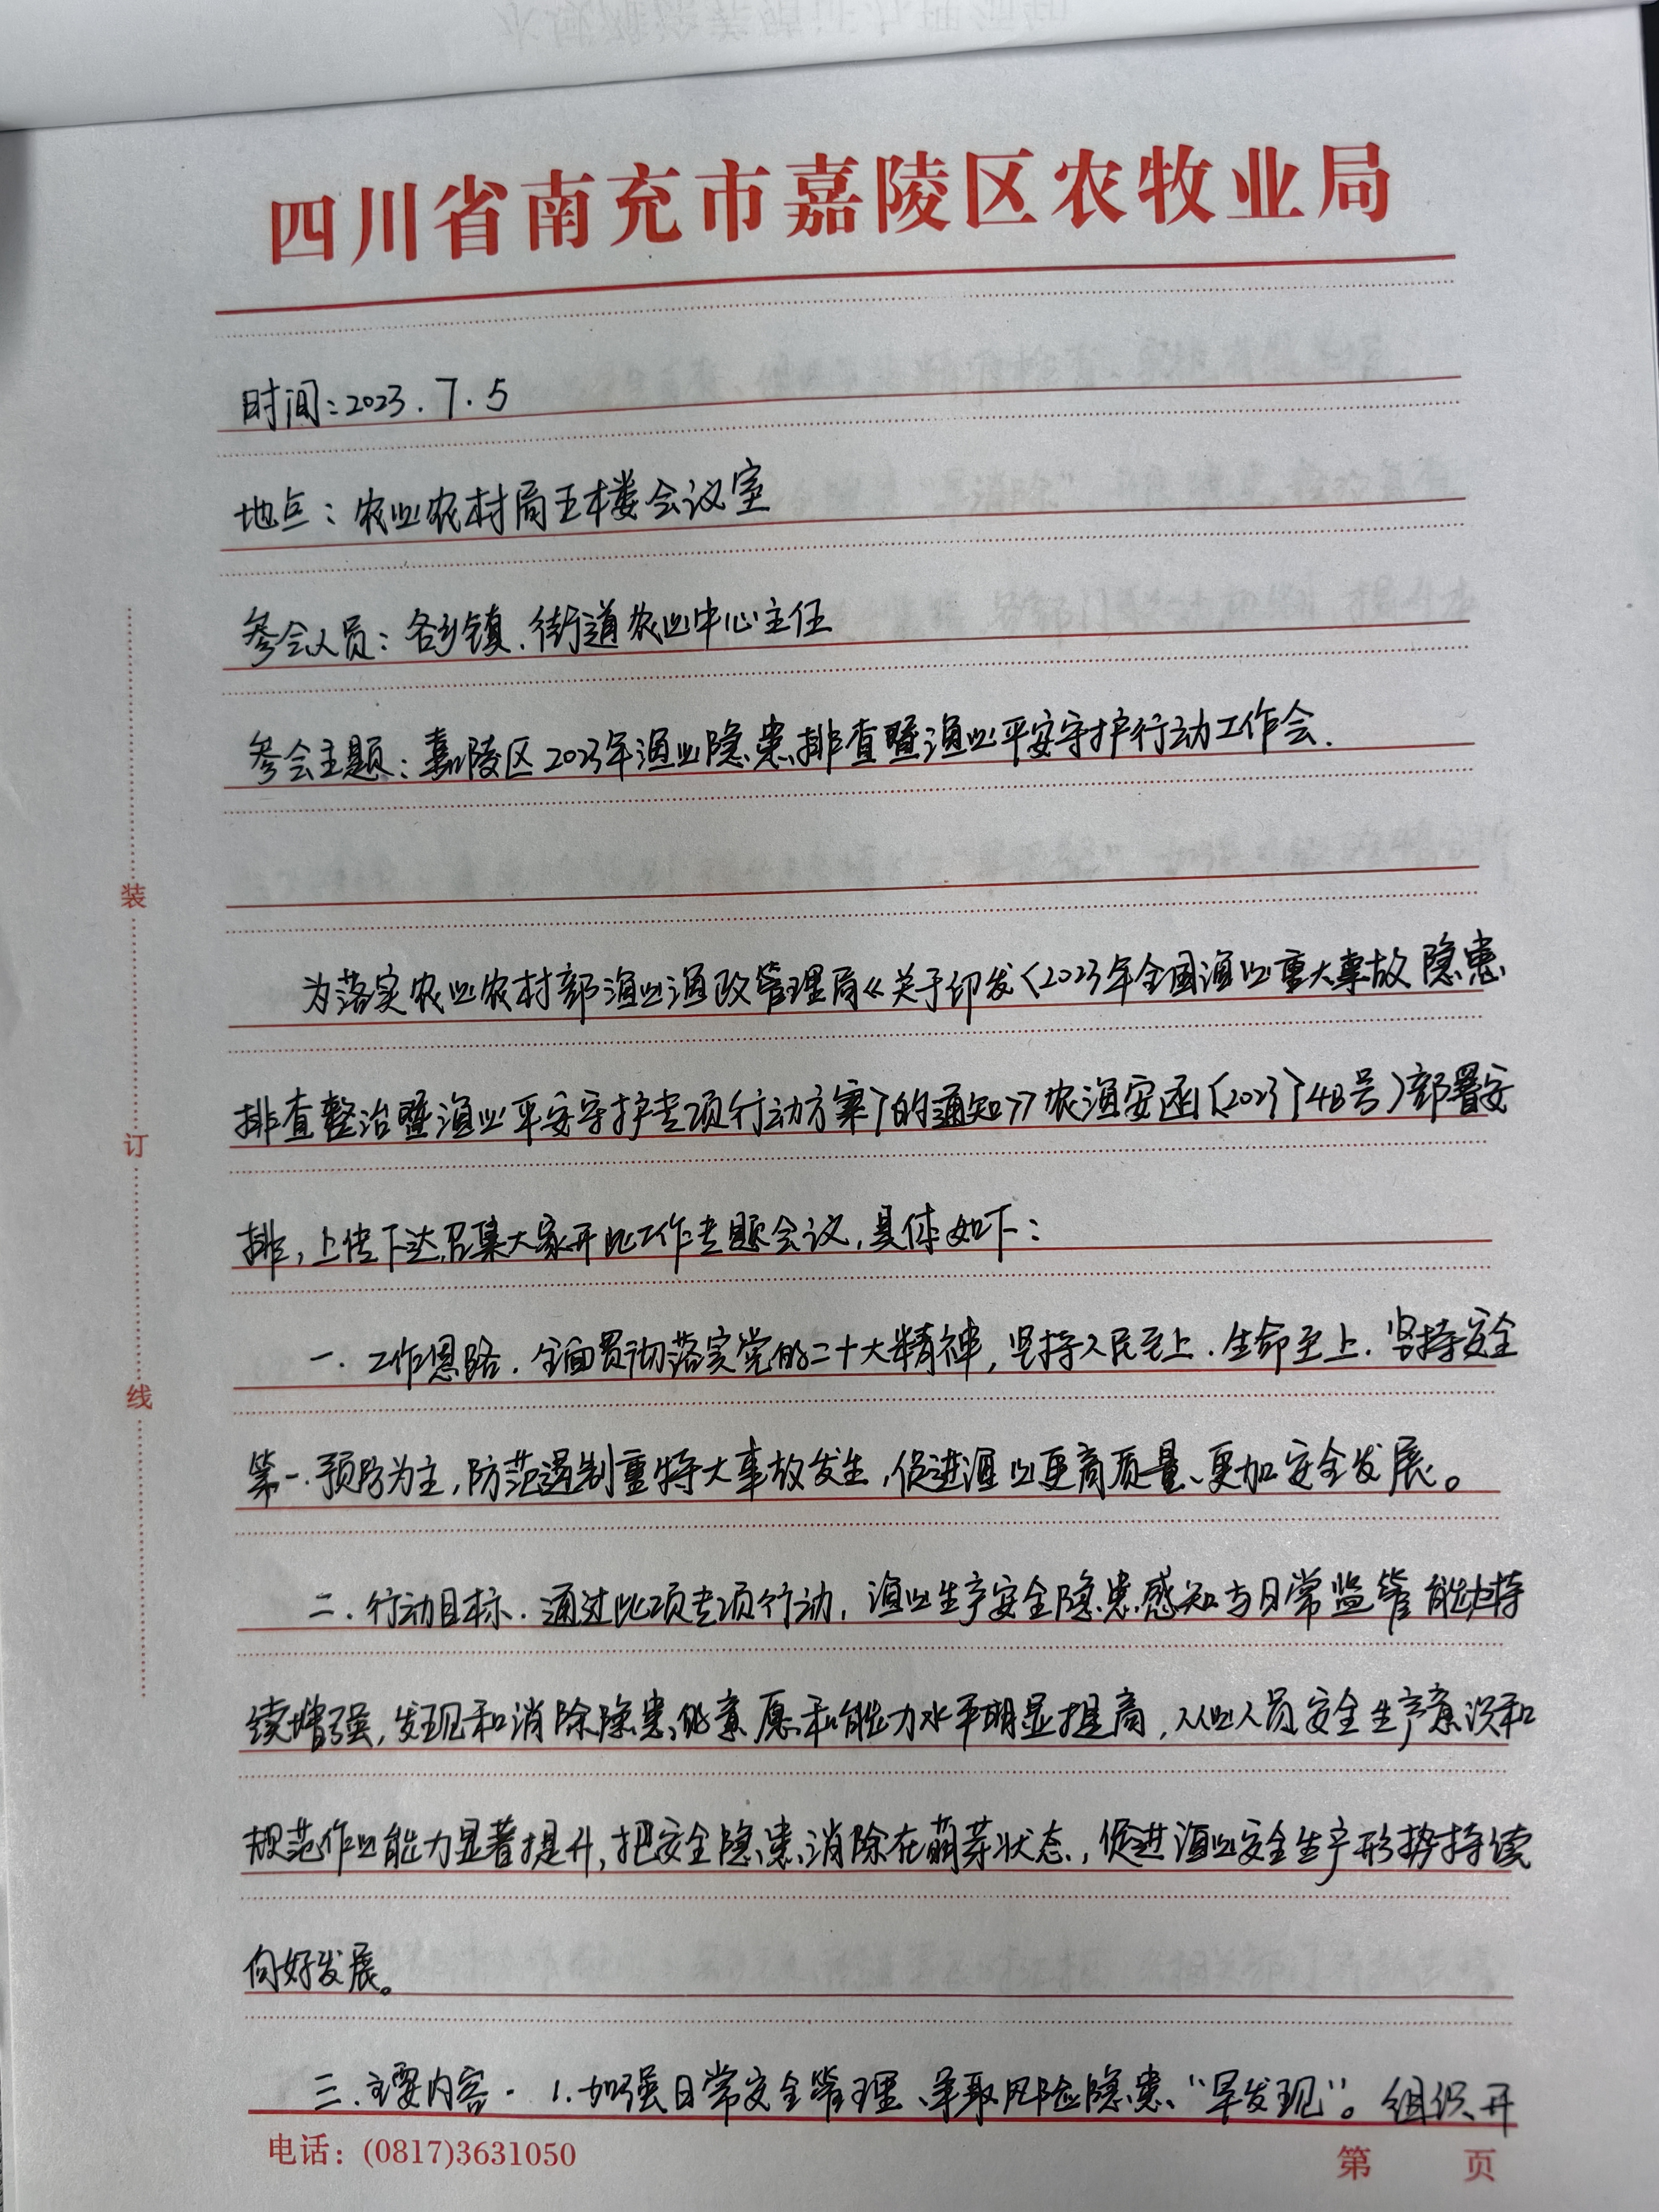 四川省南充市嘉陵区农牧业局
时间：2023.7.5
地点：农业农村局五楼会议室
参会人员：各乡镇、街道农业中心主任
参会主题：嘉陵区2023年渔业隐患排查暨渔业平安守护行动工作会.
为落实农业农村部渔业渔政管理局《关于印发〈2023年全国渔业重大事故隐患
排查整治暨渔业平安守护专项行动方案〉的通知》农渔安函〔2023〕48号）部署安
排，上传下达召集大家开此工作专题会议，具体如下：
一.工作思路.全面贯彻落实党的二十大精神，坚持人民至上.生命至上.坚持安全
第一.预防为主，防范遏制重特大事故发生，促进渔业更高质量、更加安全发展。
二.行动目标.通过此项专项行动，渔业生产安全隐患感知与日常监管能力持
续增强，发现和消除隐患的意愿和能力水平明显提高，从业人员安全生产意识和
规范作业能力显著提升，把安全隐患消除在萌芽状态，促进渔业安全生产形势持续
向好发展。
三.主要内容.1.加强日常安全管理、争取风险隐患“早发现”。组织开
装
订
线
电话：(0817)3631050
第 页